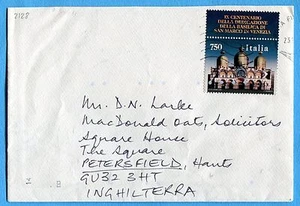 2188
IX CENTENARIO
DELLA DEDICAZIONE
DELLA BASILICA DI
SAN MARCO IN VENEZIA
750 Italia
Mr. D.N. Larke
MacDonald Oats, Solicitors
Square House
The Square
PETERSFIELD, Hants
GU32 3HT
INGHILTERRA